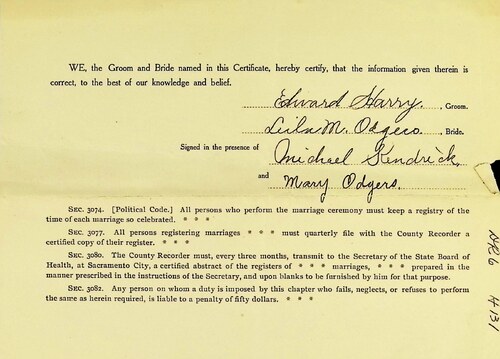 WE, the Groom and Bride named in this Certificate, hereby certify, that the information given therein is
correct, to the best of our knowledge and belief.
Edward Harry. , Groom.
Leila M. Odgers. , Bride.
Signed in the presence of Michael Kendrick,
and Mary Odgers.
SEC. 3074. [Political Code.] All persons who perform the marriage ceremony must keep a registry of the
time of each marriage so celebrated. * * *
SEC. 3077. All persons registering marriages * * * must quarterly file with the County Recorder a
certified copy of their register. * * *
SEC. 3080. The County Recorder must, every three months, transmit to the Secretary of the State Board of
Health, at Sacramento City, a certified abstract of the registers of * * * marriages, * * * prepared in the
manner prescribed in the instructions of the Secretary, and upon blanks to be furnished by him for that purpose.
SEC. 3082. Any person on whom a duty is imposed by this chapter who fails, neglects, or refuses to perform
the same as herein required, is liable to a penalty of fifty dollars. * * *